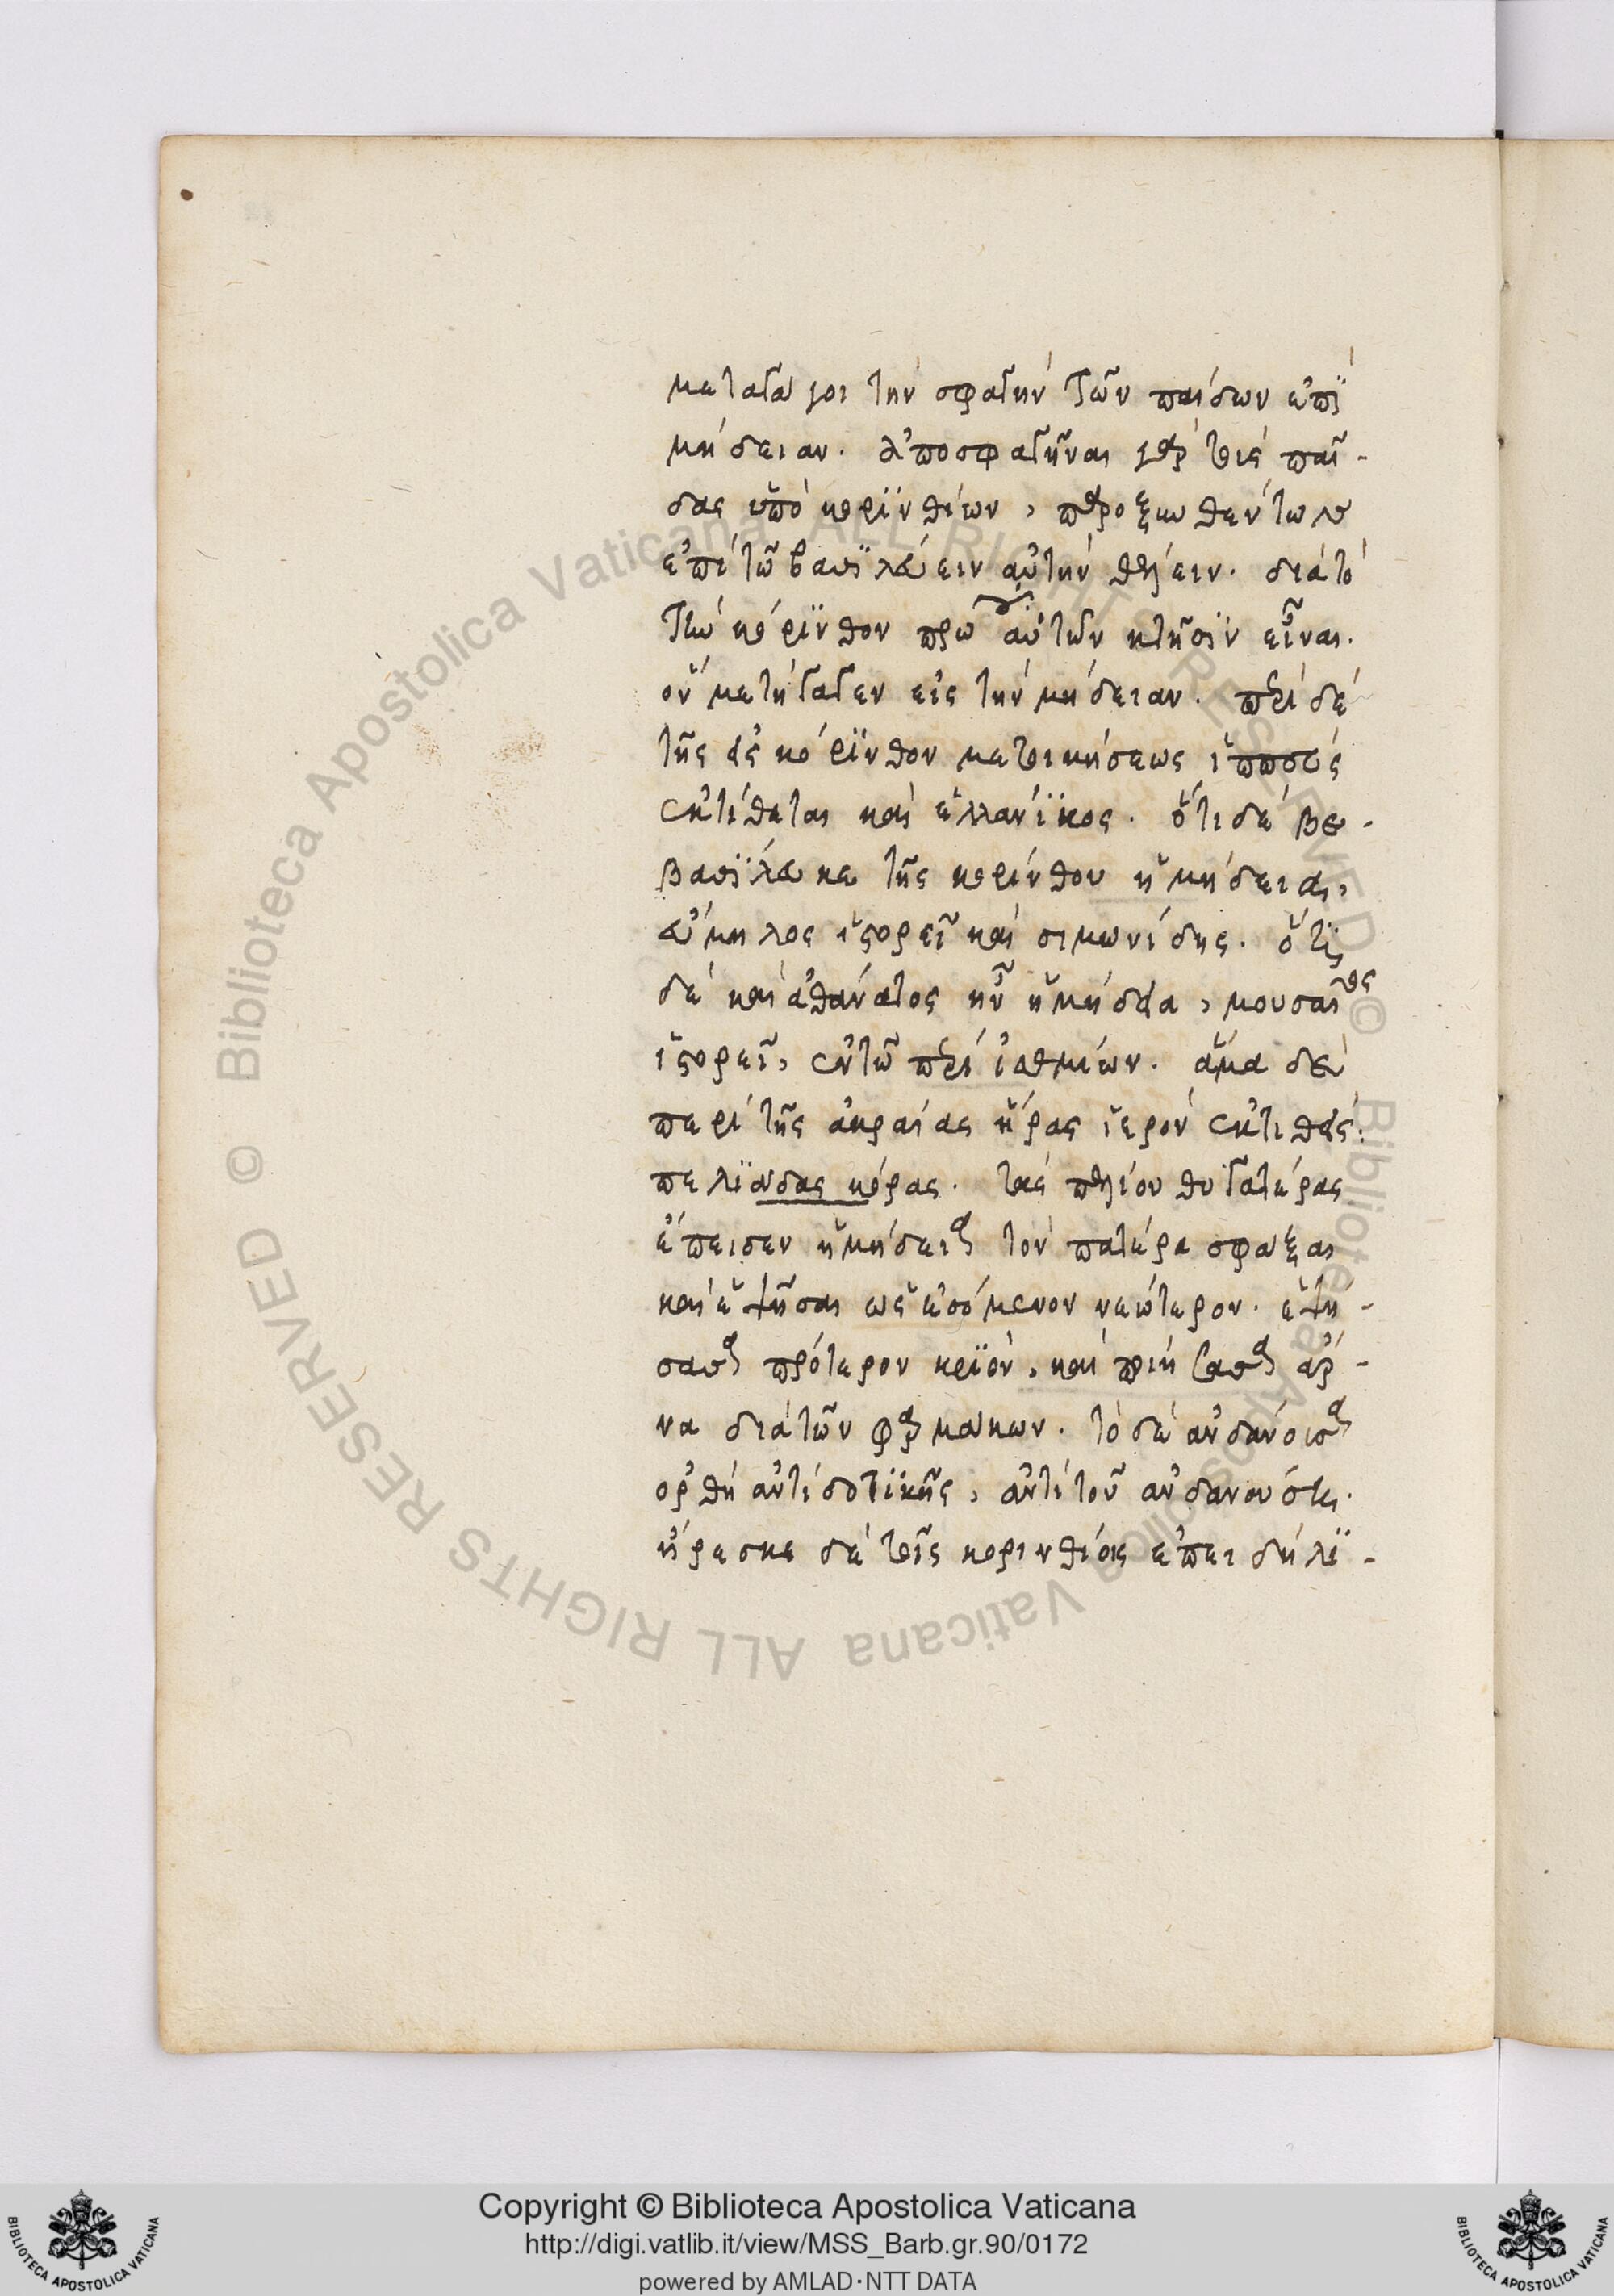 μεταγάγοι τὴν σφαγὴν τῶν παίδων ἐπὶ
μήδειαν. ἀποσφαγῆναι γὰρ τοὺς παῖ-
δας ὑπὸ κορινθίων, παροξυνθέντων
ἐπὶ τῶ βασιλεύειν αὐτὴν θέλειν. διὰ τὸ
τὴν κόρινθον πρώαν αὐτῶν κτῆσιν εἶναι.
οὗ μετήγαγεν εἰς τὴν μήδειαν. περὶ δὲ
τῆς εἰς κόρινθον μετοικήσεως ἵππυς
ἐκτίθεται καὶ ἑλλάνικος. ὅτι δὲ βε-
βασίλευκε τῆς κορίνθου ἡ μήδεια,
εὔμηλος ἱστορεῖ καὶ σιμωνίδης. ὅτι
δὲ καὶ ἀθάνατος ἦν ἡ μήδεια, μουσαῖος
ἱστορεῖ, ἐν τῶ περὶ ἰσθμίων. ἅμα δὲ
περὶ τῆς ἀκραίας ἥρας ἱερὸν ἐκτιθείς:
πελιάδας κόρας. τὰς πελίου θυγατέρας
ἔπεισεν ἡ μήδεια τὸν πατέρα σφάξαι
καὶ ἑψῆσαι ὡς ἐσόμενον νεώτερον. ἑψή-
σασα πρότερον κριὸν, καὶ ποιήσασα ἄρ-
να διὰ τῶν φαρμάκων. τὸ δὲ ἁνδάνουσα
ὀρθὴ ἀντὶ δοτικῆς, ἀντὶ τοῦ ἁνδανούση.
ἤρεσκε δὲ τοῖς κορινθίοις ἐπειδὴ λι-
Copyright © Biblioteca Apostolica Vaticana
http://digi.vatlib.it/view/MSS_Barb.gr.90/0172
powered by AMLAD·NTT DATA